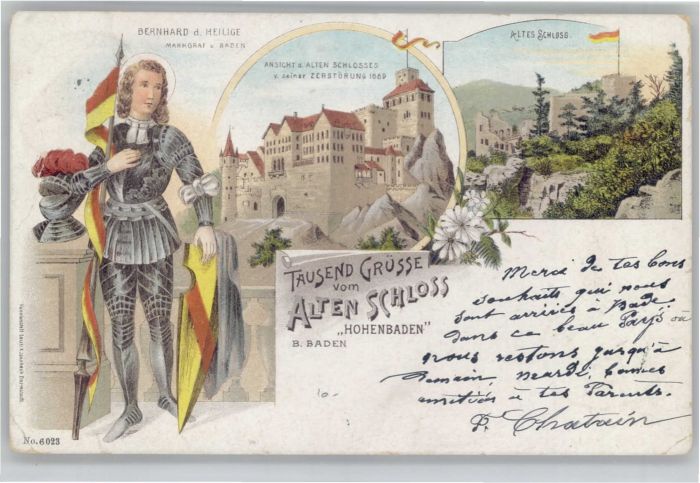 BERNHARD d. HEILIGE
MARKGRAF v. BADEN
ANSICHT d. ALTEN SCHLOSSES
v. seiner ZERSTÖRUNG 1689
ALTES SCHLOSS.
TAUSEND GRÜSSE
vom
ALTEN SCHLOSS
„HOHENBADEN"
B. BADEN
Merci de tes bons
souhaits qui nous
sont arrivés à Bade.
dans ce beau Pays où
nous restons jusqu'à
Demain, Mardi, bonnes
amitiés à tes Parents.
P. Chatain
No. 6023